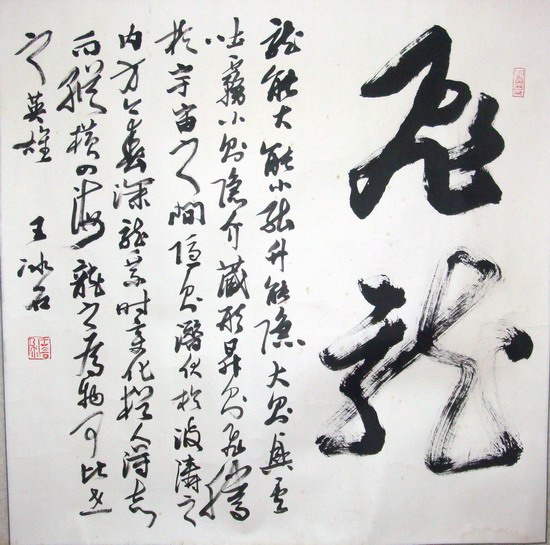 飛龍
龍能大能小能升能隱大則興雲
吐霧小則隱介藏形昇則飛騰
於宇宙之間隱則潛伏於波濤之
内方今春深龍乘時變化猶人得志
而縱橫四海龍之為物可比世
之英雄
王冰石